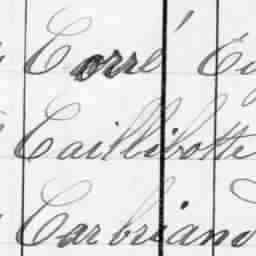 Corré
Caillibotte
Carbriand